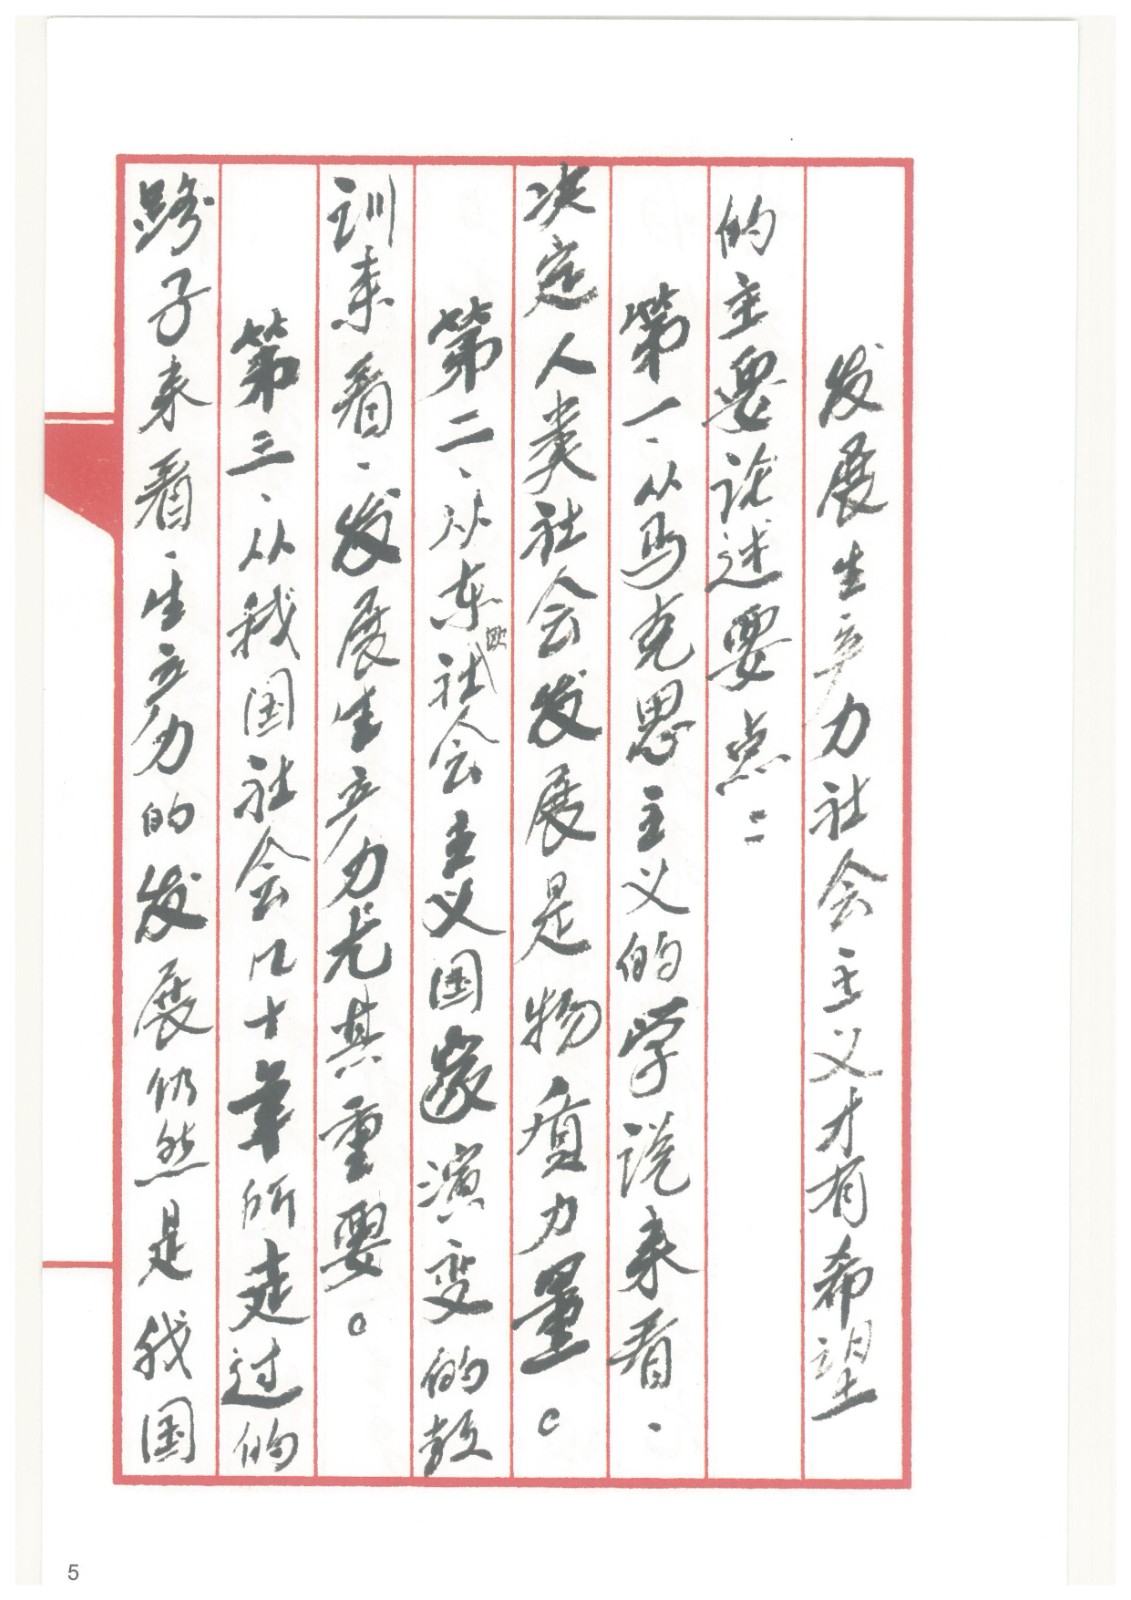 发展生产力社会主义才有希望
的主要论述要点：
第一、从马克思主义的学说来看、
决定人类社会发展是物质力量。
第二、从东欧社会主义国家演变的教
训来看、发展生产力尤其重要。
第三、从我国社会几十年所走过的
路子来看、生产力的发展仍然是我国
5